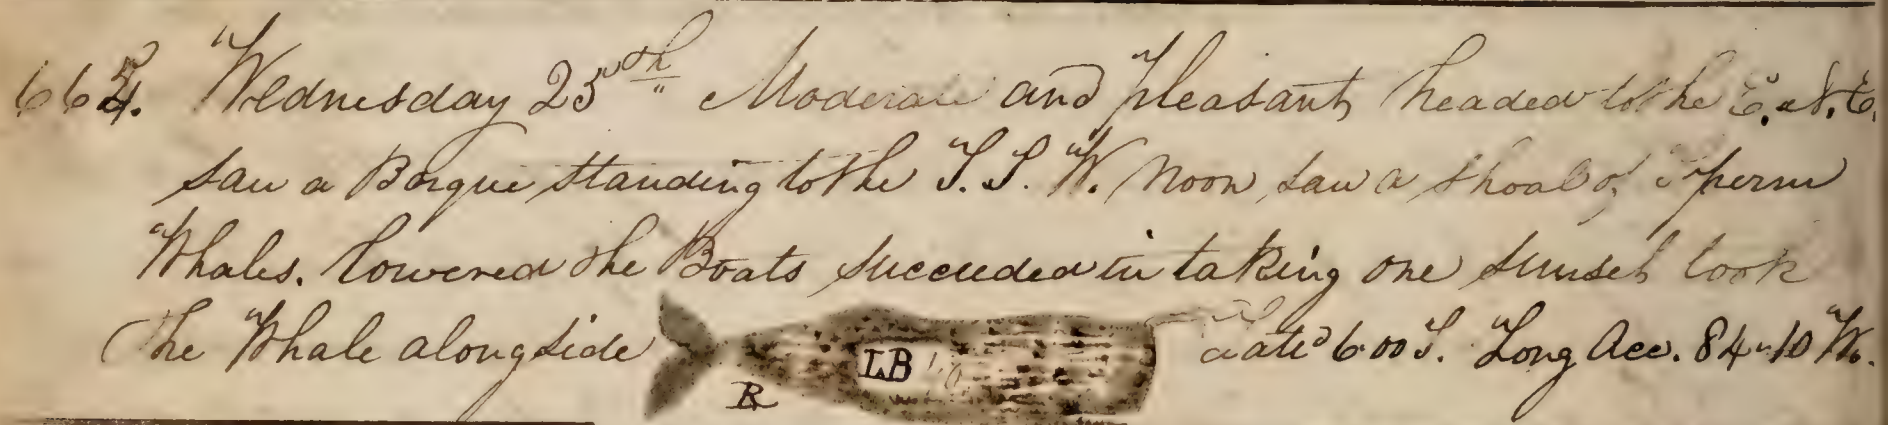 Wednesday 25th Moderate and pleasant, headed to the E.N.E.
saw a Barque standing to the S.S.W. Noon, saw a shoal of Sperm
Whales. lowered the Boats succeeded in taking one sunset took
the Whale alongside LB Lat 6.00 S. Long Acc. 84-10 W.
R